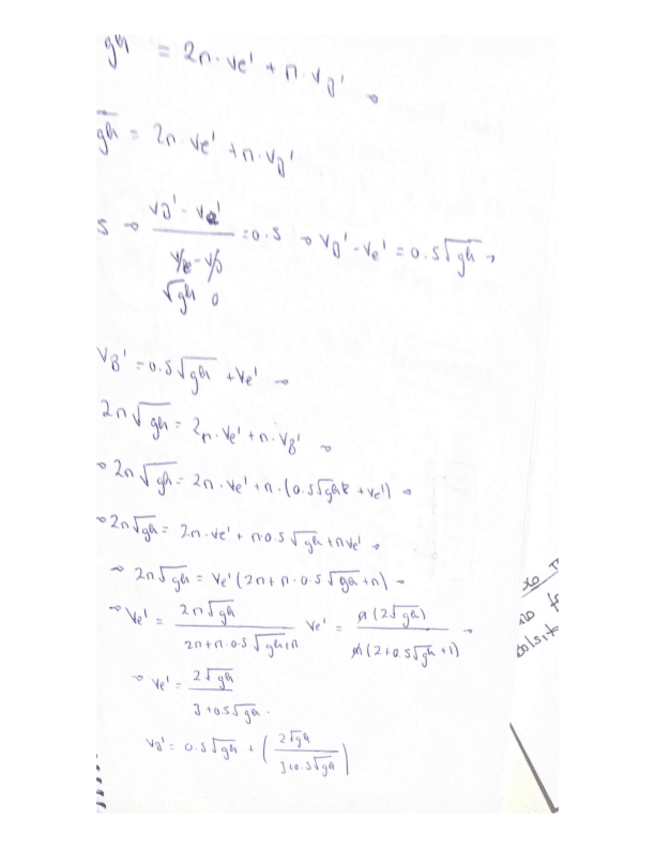 gh = 2n · ve' + n · vB' →
√gh = 2n · ve' + n · vB'
s → (vB' - ve') / (ve - vB) = 0.5 → vB' - ve' = 0.5√gh →
√gh 0
vB' = 0.5√gh + ve' →
2n√gh = 2n · ve' + n · vB' →
→ 2n√gh = 2n · ve' + n · (0.5√gh + ve') →
→ 2n√gh = 2n · ve' + n·0.5√gh + nve' →
→ 2n√gh = ve' (2n + n · 0.5√gh + n) →
→ ve' = 2n√gh / (2n + n · 0.5√gh + n) ve' = n(2√gh) / n(2+0.5√gh + 1) →
→ ve' = 2√gh / (3 + 0.5√gh) .
vB' = 0.5√gh + (2√gh / (3+0.5√gh))